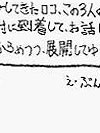 してきたロコ、この3人の
村に到着して、お話し
からめつつ、展開してゆ
え・ぶん